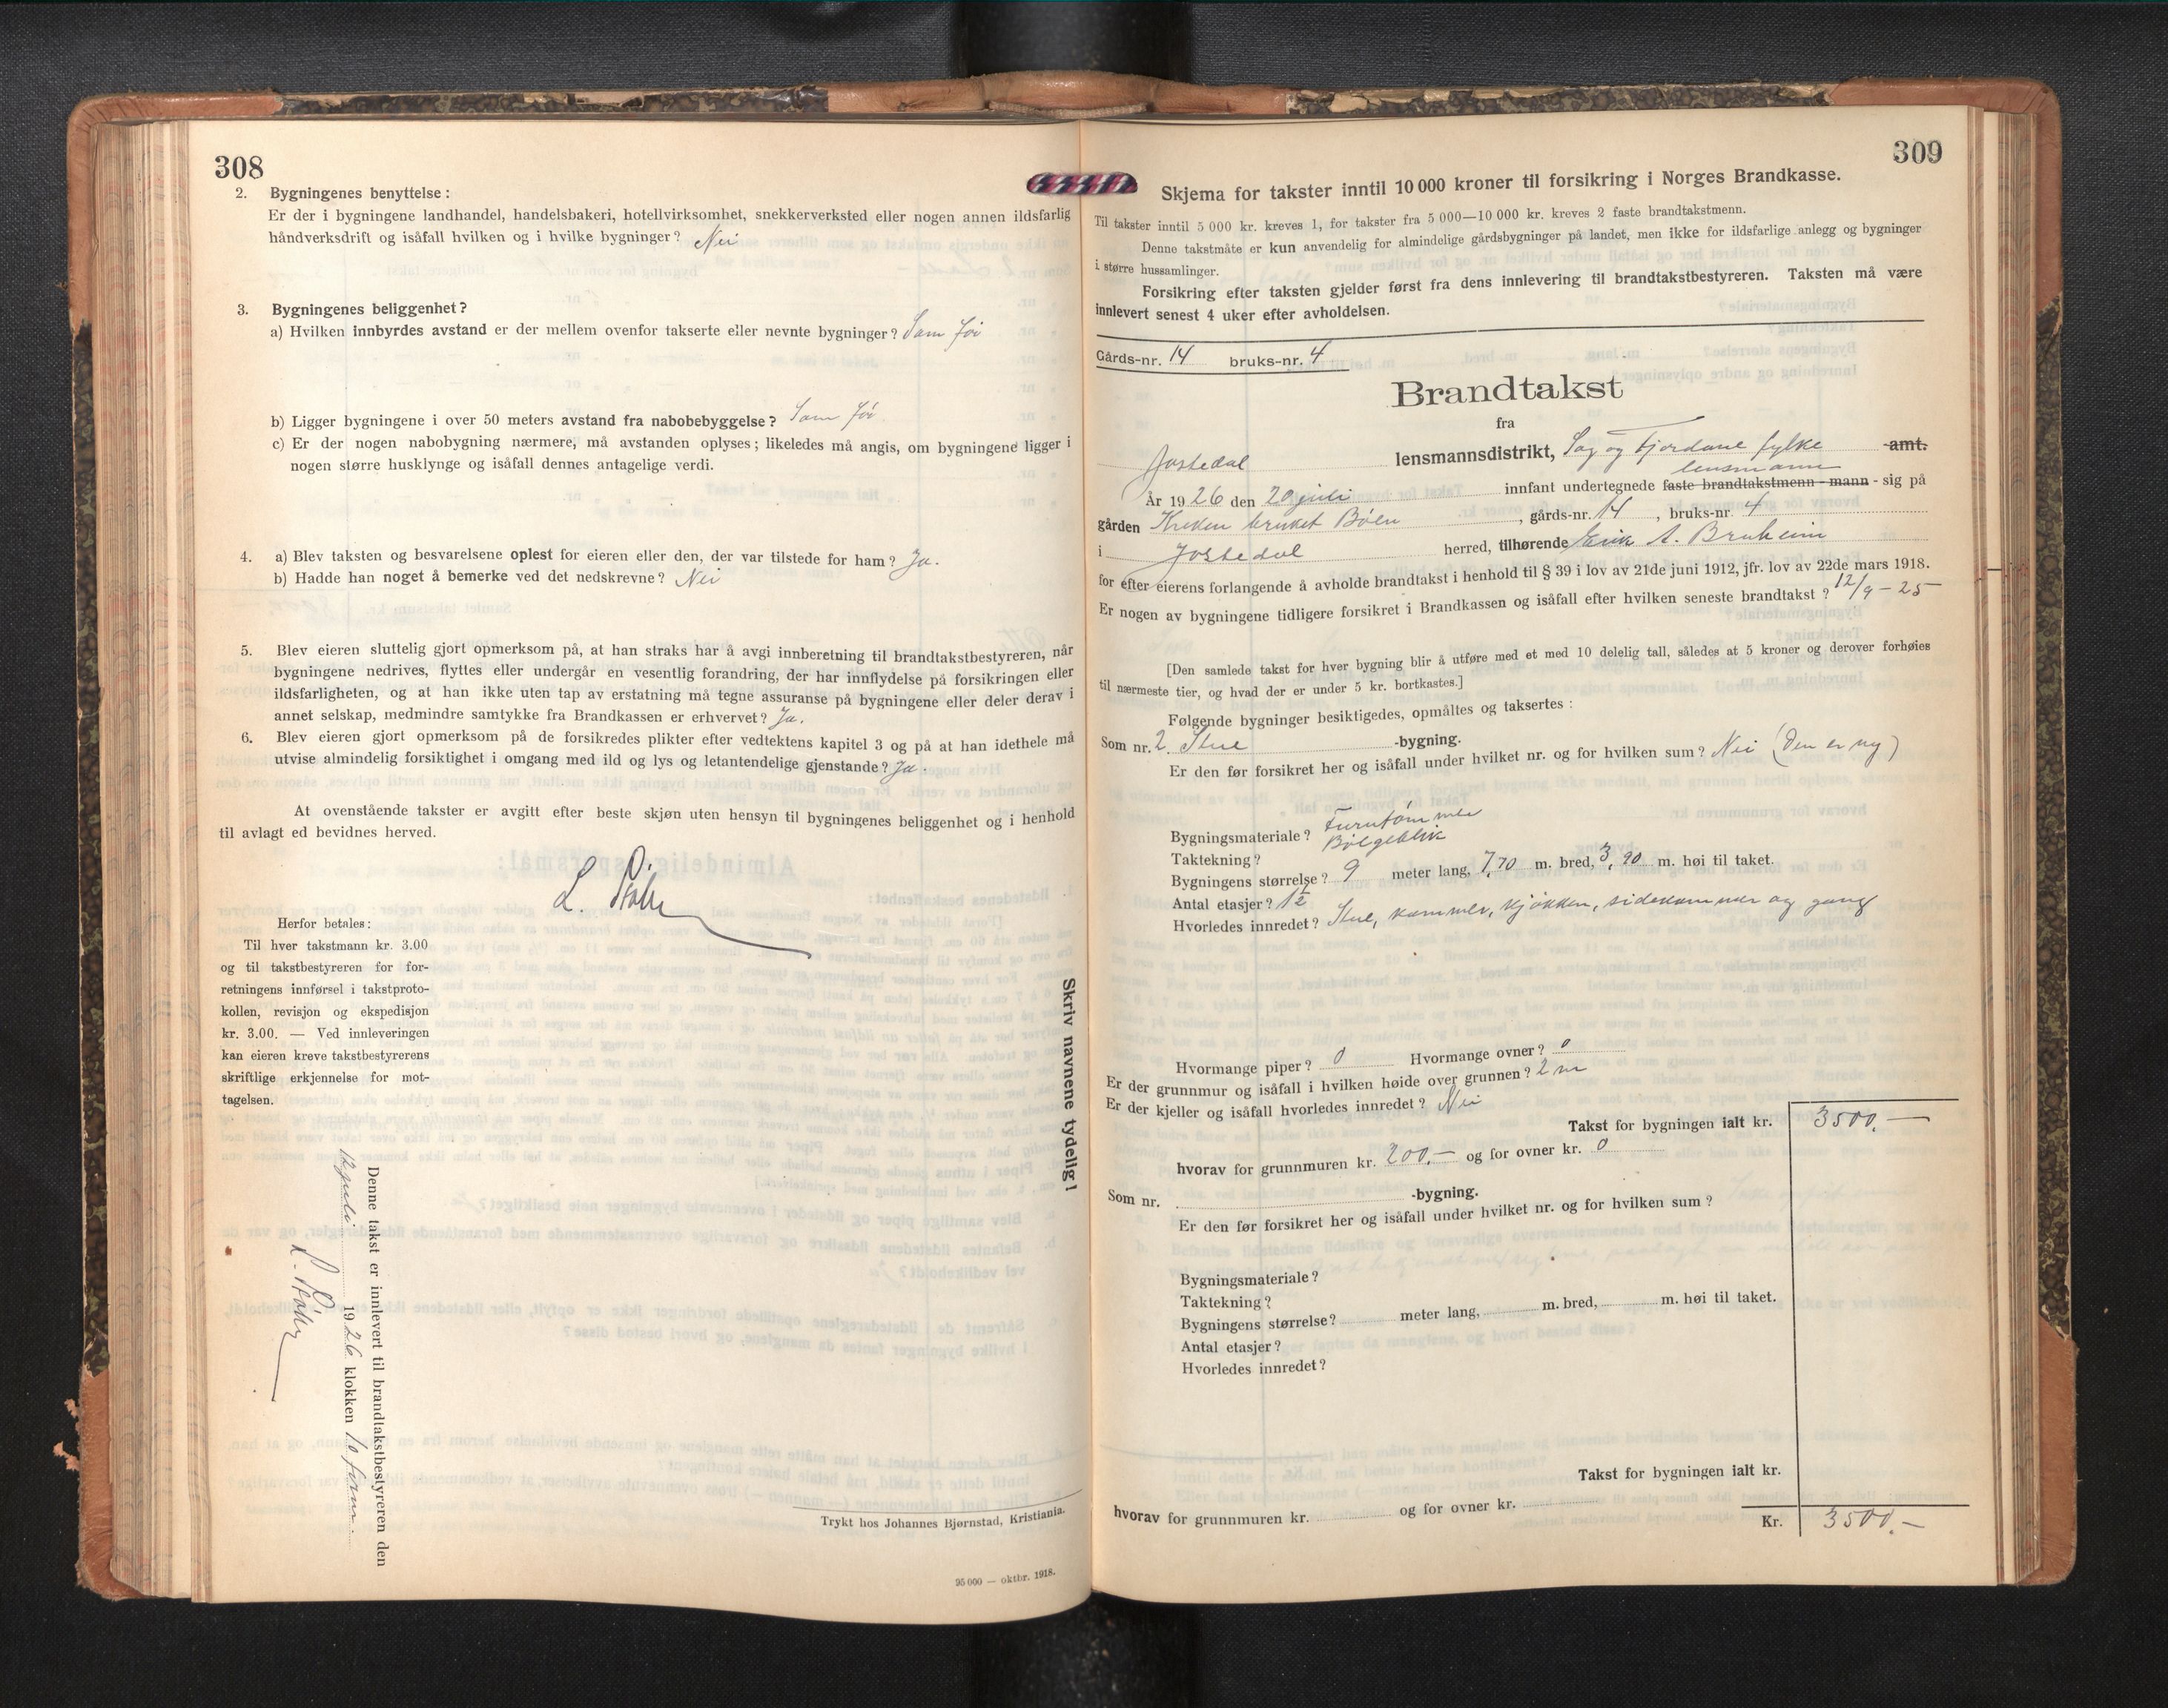 308
2. Bygningenes benyttelse:
Er der i bygningene landhandel, handelsbakeri, hotellvirksomhet, snekkerverksted eller nogen annen ildsfarlig
håndverksdrift og isåfall hvilken og i hvilke bygninger? Nei
3. Bygningenes beliggenhet?
a) Hvilken innbyrdes avstand er der mellem ovenfor takserte eller nevnte bygninger? Som før
b) Ligger bygningene i over 50 meters avstand fra nabobebyggelse? Som før
c) Er der nogen nabobygning nærmere, må avstanden oplyses; likeledes må angis, om bygningene ligger i
nogen større husklynge og isåfall dennes antagelige verdi.
4. a) Blev taksten og besvarelsene oplest for eieren eller den, der var tilstede for ham? Ja.
b) Hadde han noget å bemerke ved det nedskrevne? Nei
5. Blev eieren sluttelig gjort opmerksom på, at han straks har å avgi innberetning til brandtakstbestyreren, når
bygningene nedrives, flyttes eller undergår en vesentlig forandring, der har innflydelse på forsikringen eller
ildsfarligheten, og at han ikke uten tap av erstatning må tegne assuranse på bygningene eller deler derav i
annet selskap, medmindre samtykke fra Brandkassen er erhvervet? Ja.
6. Blev eieren gjort opmerksom på de forsikredes plikter efter vedtektens kapitel 3 og på at han idethele må
utvise almindelig forsiktighet i omgang med ild og lys og letantendelige gjenstande? Ja.
At ovenstående takster er avgitt efter beste skjøn uten hensyn til bygningenes beliggenhet og i henhold
til avlagt ed bevidnes herved.
Herfor betales:
Til hver takstmann kr. 3.00
og til takstbestyreren for for-
retningens innførsel i takstproto-
kollen, revisjon og ekspedisjon
kr. 3.00. — Ved innleveringen
kan eieren kreve takstbestyrerens
skriftlige erkjennelse for mot-
tagelsen.
Skriv navnene tydelig!
Denne takst er innlevert til brandtakstbestyreren den
juli 1926 klokken 10 form.
Trykt hos Johannes Bjørnstad, Kristiania.
95 000 — oktbr. 1918.
309
Skjema for takster inntil 10 000 kroner til forsikring i Norges Brandkasse.
Til takster inntil 5 000 kr. kreves 1, for takster fra 5 000—10 000 kr. kreves 2 faste brandtakstmenn.
Denne takstmåte er kun anvendelig for almindelige gårdsbygninger på landet, men ikke for ildsfarlige anlegg og bygninger
i større hussamlinger.
Forsikring efter taksten gjelder først fra dens innlevering til brandtakstbestyreren. Taksten må være
innlevert senest 4 uker efter avholdelsen.
Gårds-nr. 14 bruks-nr. 4
Brandtakst
fra
Jostedal lensmannsdistrikt, Sog og Fjordane fylke amt.
lensmann
År 1926 den 20 juli innfant undertegnede faste brandtakstmenn - mann - sig på
gården Kreken bruket Bolen, gårds-nr. 14, bruks-nr. 4
i Jostedal herred, tilhørende Erik A. Bruheim
for efter eierens forlangende å avholde brandtakst i henhold til § 39 i lov av 21de juni 1912, jfr. lov av 22de mars 1918.
Er nogen av bygningene tidligere forsikret i Brandkassen og isåfall efter hvilken seneste brandtakst? 12/9 – 25
[Den samlede takst for hver bygning blir å utføre med et med 10 delelig tall, således at 5 kroner og derover forhøies
til nærmeste tier, og hvad der er under 5 kr. bortkastes.]
Følgende bygninger besiktigedes, opmåltes og taksertes:
Som nr. 2. Stue -bygning.
Er den før forsikret her og isåfall under hvilket nr. og for hvilken sum? Nei (Den er ny)
Bygningsmateriale? Furutømmer
Taktekning? Bølgeblik
Bygningens størrelse? 9 meter lang, 7,70 m. bred, 3,90 m. høi til taket.
Antal etasjer? 1½
Hvorledes innredet? Stue, kammer, kjøkken, sidekammer og gang
Hvormange piper? 0 Hvormange ovner? 0
Er der grunnmur og isåfall i hvilken høide over grunnen? 2 m
Er der kjeller og isåfall hvorledes innredet? Nei
Takst for bygningen ialt kr. 3500.–
hvorav for grunnmuren kr. 200.– og for ovner kr. 0
Som nr. -bygning.
Er den før forsikret her og isåfall under hvilket nr. og for hvilken sum?
Bygningsmateriale?
Taktekning?
Bygningens størrelse? meter lang, m. bred, m. høi til taket.
Antal etasjer?
Hvorledes innredet?
Takst for bygningen ialt kr.
hvorav for grunnmuren kr. og for ovner kr.
Kr. 3500.–